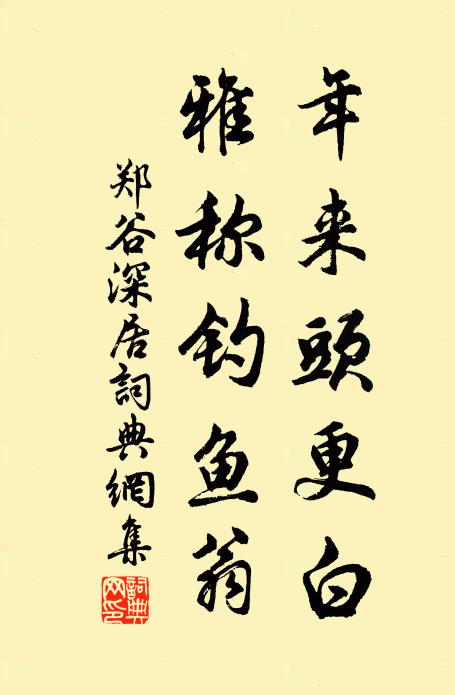 年来頭更白
雅称钓鱼翁
郑谷深居詞典網集
詞典网印